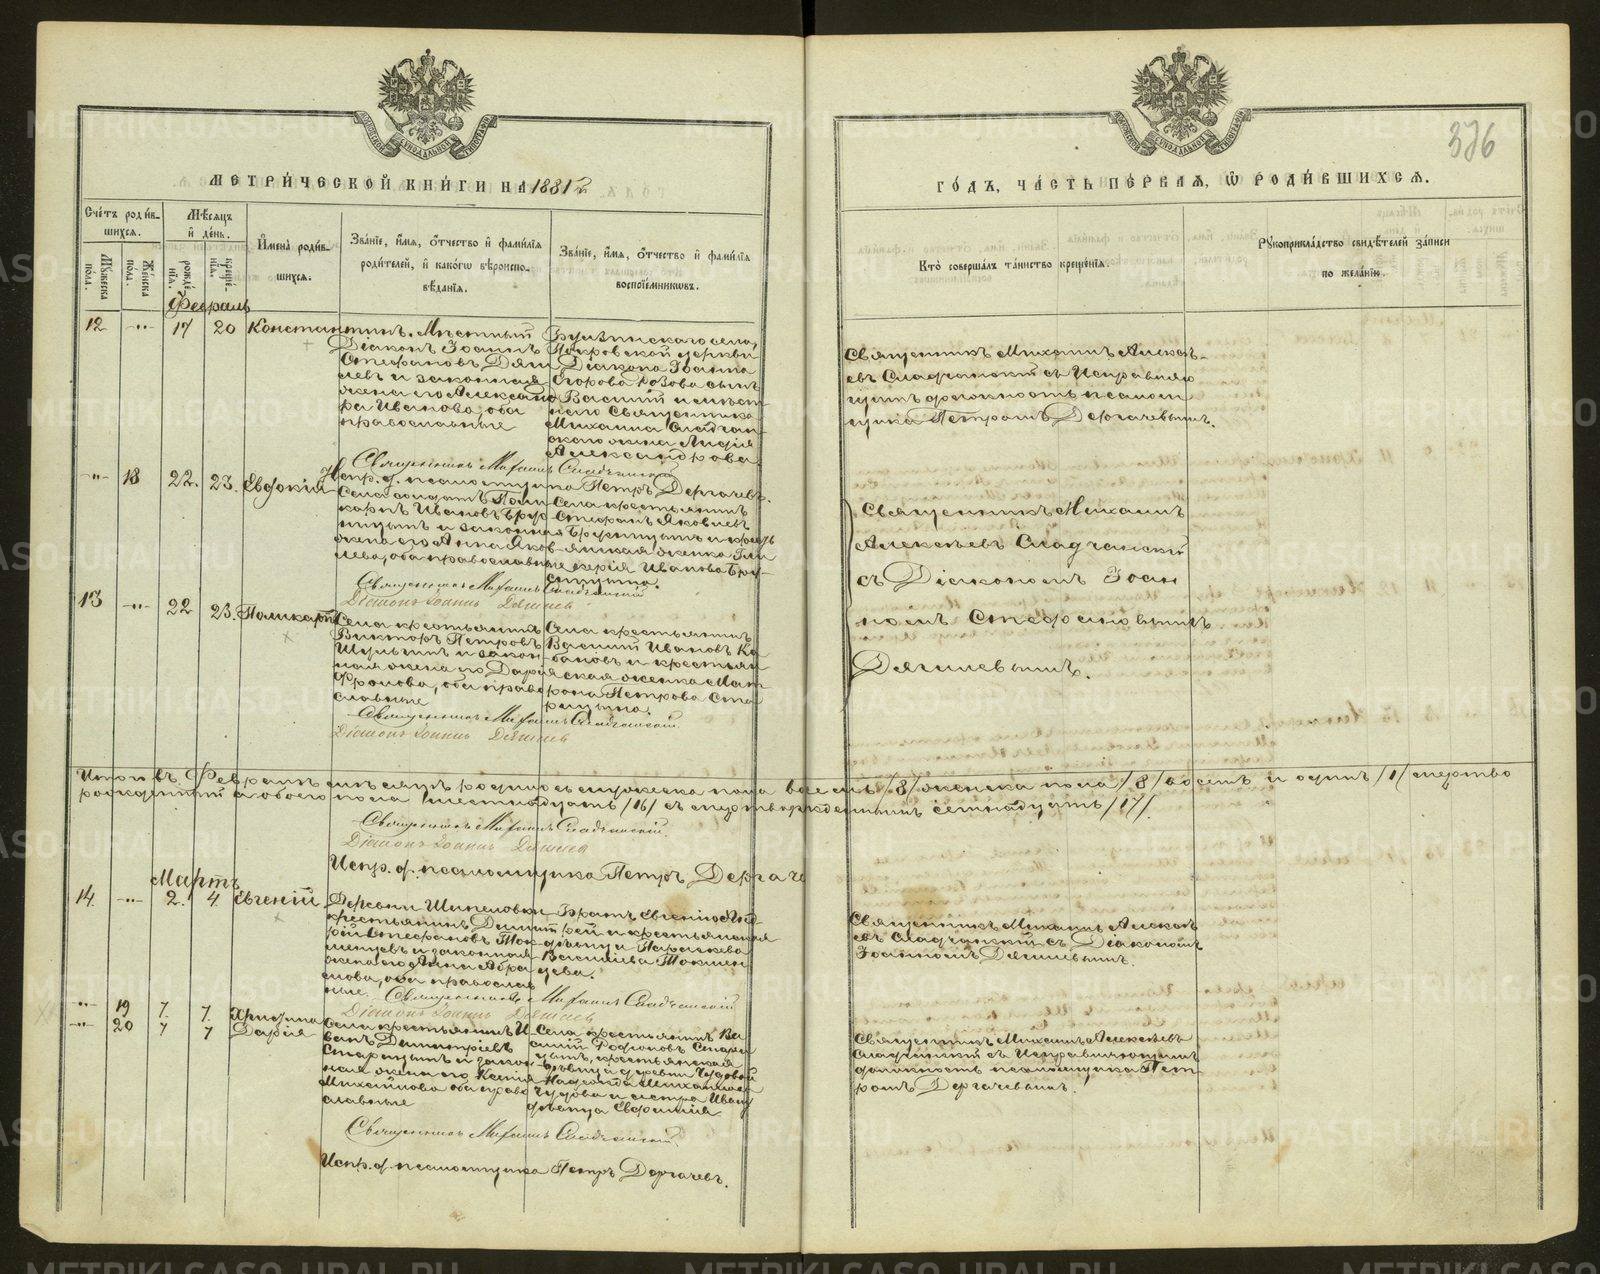 МЕТРИ́ЧЕСКОЙ КНИ́ГИ НА 1881/2
ГО́ДЪ, ЧА́СТЬ ПЕ́РВАЯ, Ѡ РОДИ́ВШИХСЯ.
376
Сче́тъ роди́в-
шихся.
Му́жеска
по́ла.
Же́нска
по́ла.
Мѣ́сяцъ
и҆ де́нь.
рожде́-
нїя.
креще́-
нїя.
И҆мена̀ роди́в-
шихся.
Зва́нїе, и҆́мя, ѻ҆́тчество и҆ фами́лїя
роди́телей, и҆ како́гѡ вѣроиспо-
вѣ́данїя.
Зва́нїе, и҆́мя, ѻ҆́тчество и҆ фами́лїя
воспрїе́мникѡвъ.
Кто̀ соверша́лъ та́инство креще́нїя.
Рꙋкоприкла́дство свидѣ́телей за́писи
по жела́нїю.
Февраль
12 -"- 17 20 Константинъ.
Мѣстный
Діаконъ Іоаннъ
Стефановъ Дяги
левъ и законная
жена его Александ
ра Иванова, оба
православные
села,
Покровской церкви
Діакона Іоанна
Егорова Розова сынъ
Василій и мѣст
наго Священника
Михаила Сладчан-
скаго жена Лидія
Александрова.
Священникъ Михаилъ Алексѣ-
евъ Сладчанскій съ Исправляю
щимъ должность псалом
щика Петромъ Дергачевымъ.
Священникъ Михаилъ Сладчанскій
Испр. д. псаломщика Петръ Дергачевъ.
-"- 18 22. 23. Евдокія
Села солдатъ Поли
карпъ Ивановъ Бру
и законная
жена его Анна Яков
лева, оба православные
Села крестьянинъ
Стефанъ Яковлевъ
и кресть
янская женка Гли
керія Иванова Бру-
Священникъ Михаилъ
Алексѣевъ Сладчанскій
съ Діакономъ Іоан
номъ Стефановымъ
Дягилевымъ.
Священникъ Михаилъ Сладчанскій
Діаконъ Іоаннъ Дягилевъ
13 -"- 22 23. Поликарпъ
Села крестьянинъ
Викторъ Петровъ
и закон
ная жена его Дарія
Фролова, оба право
славные
Села крестьянинъ
Василій Ивановъ Ка
бановъ и крестьян
ская женка Мат
рона Петрова Ста
рицына.
Священникъ Михаилъ Сладчанскій
Діаконъ Іоаннъ Дягилевъ
Итого въ Февралѣ мѣсяцѣ родилось мужеска пола восемь /8/ женска пола /8/ восемь и одинъ /1/ мертво
рожденный а обоего пола шестнадцать /16/ съ мертворожденнымъ семнадцать /17/.
Священникъ Михаилъ Сладчанскій
Діаконъ Іоаннъ Дягилевъ
Испр. д. псаломщика Петръ Дергаче
Мартъ
14. -"- 2. 4. Евгеній
Деревни Шипеловки
крестьянинъ Димит
рій Стефановъ Ток
менцевъ и законная
жена его Анна Абра
мова, оба православ
ные.
Братъ Евгенію Анд-
рей и крестьянская
дѣвица Параскева
Васильева Токмен
цева.
Священникъ Михаилъ Алексѣ
евъ Сладчанскій съ Діакономъ
Іоанномъ Дягилевымъ.
Священникъ Михаилъ Сладчанскій
Діаконъ Іоаннъ Дягилевъ
-"- 19 7. 7.
-"- 20 7 7 Дарія
Села крестьянинъ И
ванъ Димитріевъ
Старицынъ и закон
ная жена его Ксенія
Михайлова оба право
славные
Села крестьянинъ Ва
силій Родіоновъ Стари
цынъ, крестьянская
дѣвица деревни Чудовой
Надежда Михайлова
Чудова и сестра Ивану
дѣвица Евфимія
Священникъ Михаилъ Алексѣевъ
Сладчанскій съ Исправляющимъ
должность псаломщика Пет
ромъ Дергачевымъ.
Священникъ Михаилъ Сладчанскій
Испр. д. псаломщика Петръ Дергачевъ.
METRIKI.GASO-URAL.RU